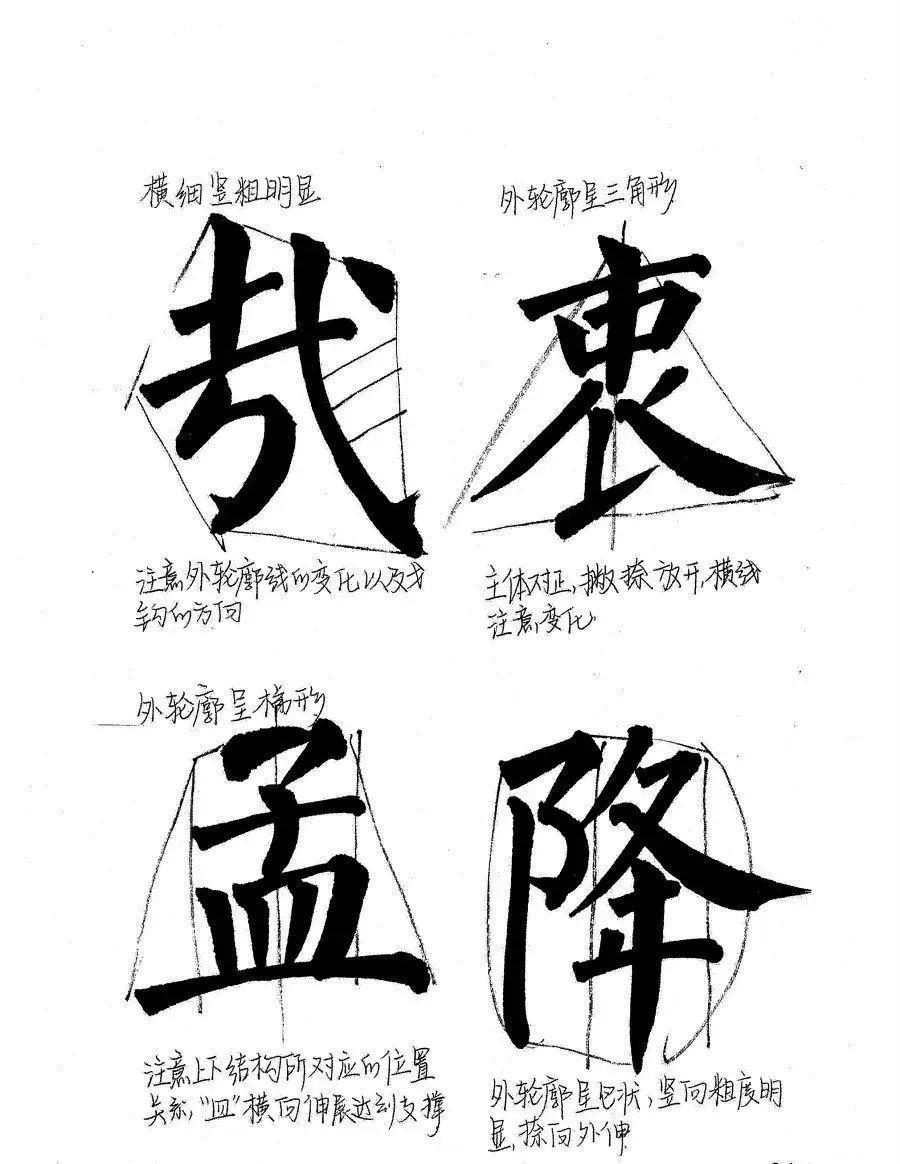 横细竖粗明显
哉
注意外轮廓线的变化以及戈
钩的方向
外轮廓呈三角形
衷
主体对正,撇捺放开,横线
注意变化
外轮廓呈梯形
孟
注意上下结构所对应的位置
关系,“皿”横向伸展达到支撑
降
外轮廓呈包状,竖向粗度明
显,捺向外伸